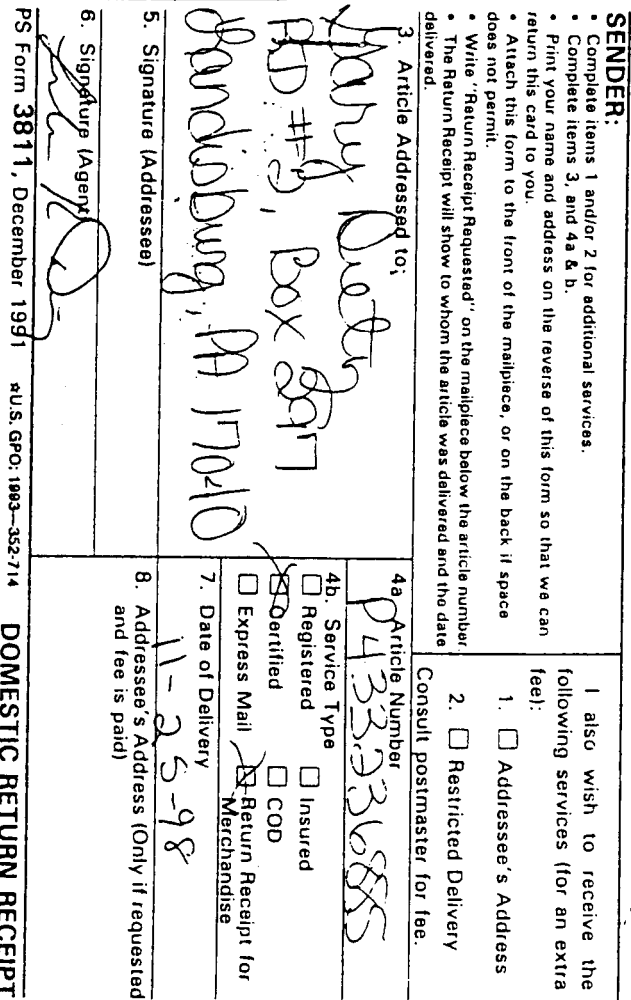 SENDER:
• Complete items 1 and/or 2 for additional services.
• Complete items 3, and 4a & b.
• Print your name and address on the reverse of this form so that we can
return this card to you.
• Attach this form to the front of the mailpiece, or on the back if space
does not permit.
• Write "Return Receipt Requested" on the mailpiece below the article number.
• The Return Receipt will show to whom the article was delivered and the date
delivered.
I also wish to receive the
following services (for an extra
fee):
1. ☐ Addressee's Address
2. ☐ Restricted Delivery
Consult postmaster for fee.
3. Article Addressed to:
RD #2, Box 297
Landisburg, PA 17040
4a Article Number
P 433 236 885
4b. Service Type
☐ Registered ☐ Insured
☒ Certified ☐ COD
☐ Express Mail ☒ Return Receipt for
Merchandise
7. Date of Delivery
11-25-98
5. Signature (Addressee)
8. Addressee's Address (Only if requested
and fee is paid)
6. Signature (Agent)
PS Form 3811, December 1991 ☆U.S. GPO: 1993—352-714 DOMESTIC RETURN RECEIPT